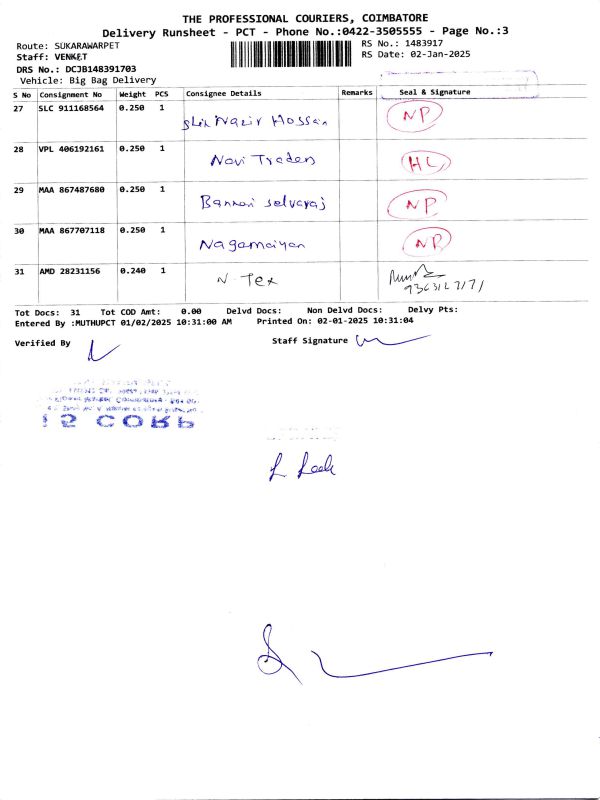 THE PROFESSIONAL COURIERS, COIMBATORE
Delivery Runsheet - PCT - Phone No.:0422-3505555 - Page No.:3
Route: SUKARAWARPET
RS No.: 1483917
Staff: VENKET
RS Date: 02-Jan-2025
DRS No.: DCJB148391703
Vehicle: Big Bag Delivery
S No Consignment No Weight PCS Consignee Details Remarks Seal & Signature
27 SLC 911168564 0.250 1 Nazir Hossain NP
28 VPL 406192161 0.250 1 Novi Traders HL
29 MAA 867487680 0.250 1 Bannari selvaraj NP
30 MAA 867707118 0.250 1 Nagamaiyan NP
31 AMD 28231156 0.240 1 N. Tex
Tot Docs: 31 Tot COD Amt: 0.00 Delvd Docs: Non Delvd Docs: Delvy Pts:
Entered By :MUTHUPCT 01/02/2025 10:31:00 AM Printed On: 02-01-2025 10:31:04
Verified By
Staff Signature